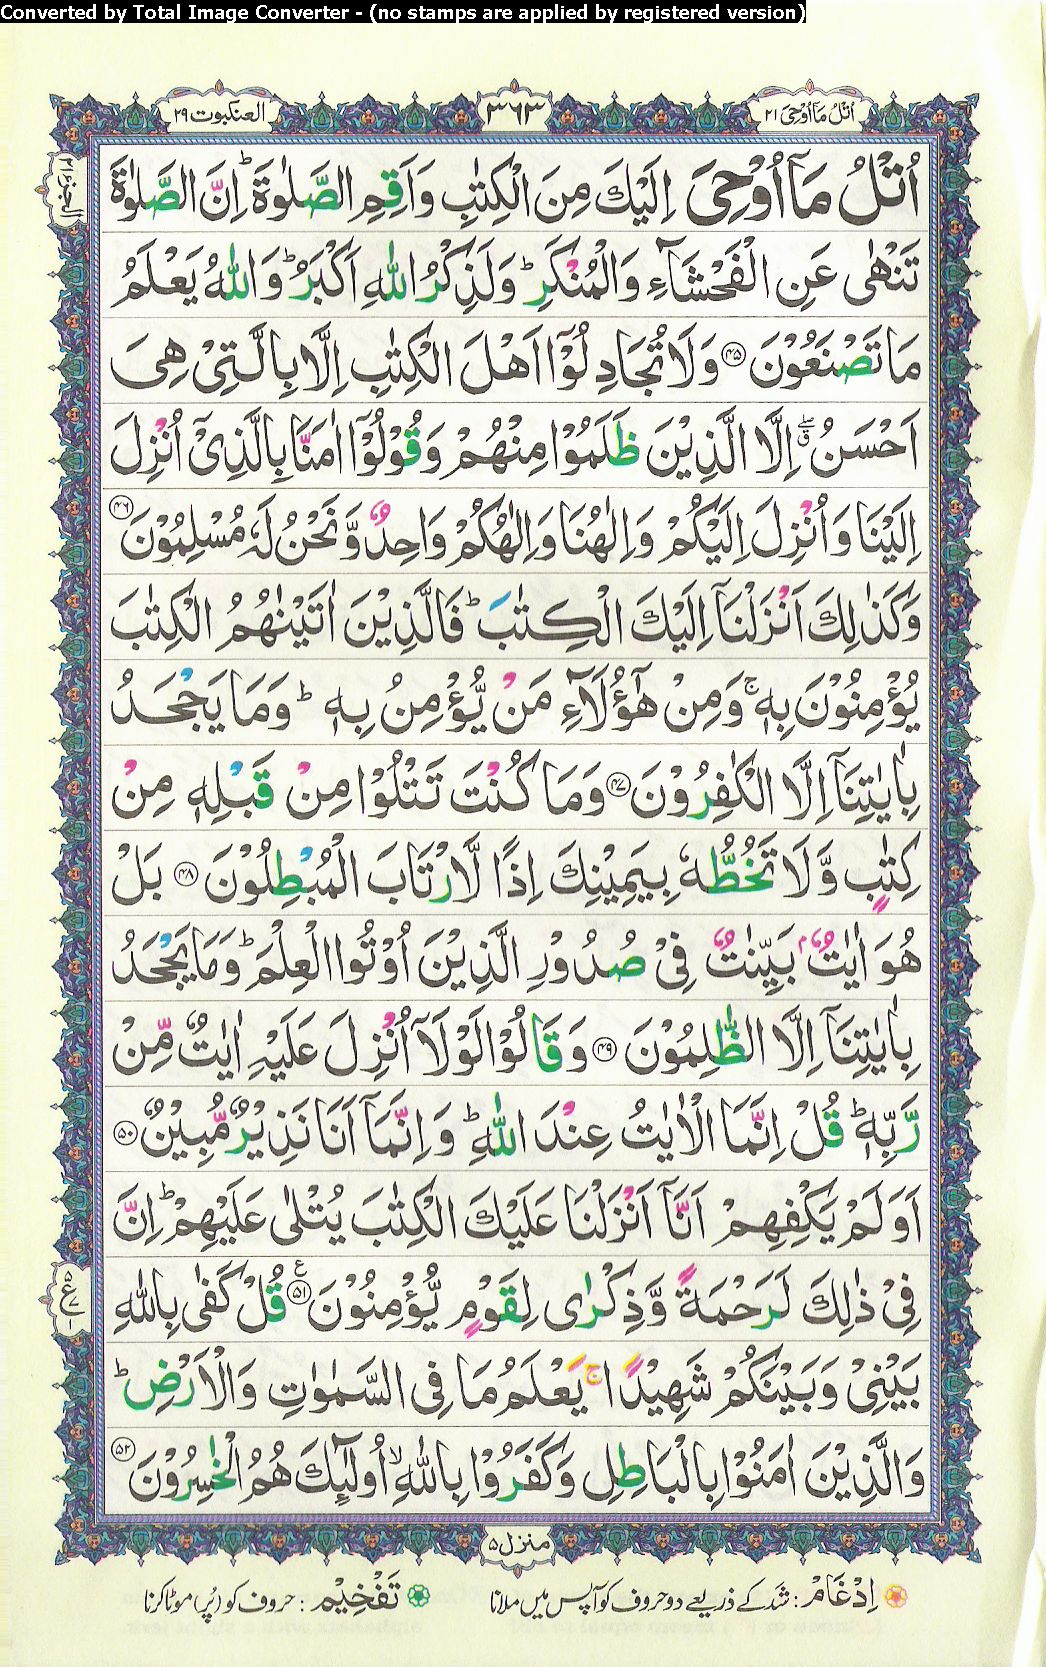 Converted by Total Image Converter - (no stamps are applied by registered version)
اتل ما اوحی ۲۱
۳۶۳
العنکبوت ۲۹
الجزء ۲۱
اُتْلُ مَاۤ اُوْحِیَ اِلَیْكَ مِنَ الْكِتٰبِ وَاَقِمِ الصَّلٰوةَ ؕ اِنَّ الصَّلٰوةَ
تَنْهٰی عَنِ الْفَحْشَآءِ وَالْمُنْكَرِ ؕ وَلَذِكْرُ اللّٰهِ اَكْبَرُ ؕ وَاللّٰهُ یَعْلَمُ
مَا تَصْنَعُوْنَ ﴿۴۵﴾ وَلَا تُجَادِلُوْۤا اَهْلَ الْكِتٰبِ اِلَّا بِالَّتِیْ هِیَ
اَحْسَنُ ۖۗ اِلَّا الَّذِیْنَ ظَلَمُوْا مِنْهُمْ وَقُوْلُوْۤا اٰمَنَّا بِالَّذِیْۤ اُنْزِلَ
اِلَیْنَا وَاُنْزِلَ اِلَیْكُمْ وَاِلٰهُنَا وَاِلٰهُكُمْ وَاحِدٌ وَّنَحْنُ لَهٗ مُسْلِمُوْنَ ﴿۴۶﴾
وَكَذٰلِكَ اَنْزَلْنَاۤ اِلَیْكَ الْكِتٰبَ ؕ فَالَّذِیْنَ اٰتَیْنٰهُمُ الْكِتٰبَ
یُؤْمِنُوْنَ بِهٖ ۚ وَمِنْ هٰۤؤُلَآءِ مَنْ یُّؤْمِنُ بِهٖ ؕ وَمَا یَجْحَدُ
بِاٰیٰتِنَاۤ اِلَّا الْكٰفِرُوْنَ ﴿۴۷﴾ وَمَا كُنْتَ تَتْلُوْا مِنْ قَبْلِهٖ مِنْ
كِتٰبٍ وَّلَا تَخُطُّهٗ بِیَمِیْنِكَ اِذًا لَّارْتَابَ الْمُبْطِلُوْنَ ﴿۴۸﴾ بَلْ
هُوَ اٰیٰتٌۢ بَیِّنٰتٌ فِیْ صُدُوْرِ الَّذِیْنَ اُوْتُوا الْعِلْمَ ؕ وَمَا یَجْحَدُ
بِاٰیٰتِنَاۤ اِلَّا الظّٰلِمُوْنَ ﴿۴۹﴾ وَقَالُوْا لَوْلَاۤ اُنْزِلَ عَلَیْهِ اٰیٰتٌ مِّنْ
رَّبِّهٖ ؕ قُلْ اِنَّمَا الْاٰیٰتُ عِنْدَ اللّٰهِ ؕ وَاِنَّمَاۤ اَنَا نَذِیْرٌ مُّبِیْنٌ ﴿۵۰﴾
اَوَلَمْ یَكْفِهِمْ اَنَّاۤ اَنْزَلْنَا عَلَیْكَ الْكِتٰبَ یُتْلٰی عَلَیْهِمْ ؕ اِنَّ
فِیْ ذٰلِكَ لَرَحْمَةً وَّذِكْرٰی لِقَوْمٍ یُّؤْمِنُوْنَ ﴿۵۱﴾ قُلْ كَفٰی بِاللّٰهِ
بَیْنِیْ وَبَیْنَكُمْ شَهِیْدًا ۚ یَعْلَمُ مَا فِی السَّمٰوٰتِ وَالْاَرْضِ ؕ
وَالَّذِیْنَ اٰمَنُوْا بِالْبَاطِلِ وَكَفَرُوْا بِاللّٰهِ ۙ اُولٰٓئِكَ هُمُ الْخٰسِرُوْنَ ﴿۵۲﴾
منزل ۵
اِدْغَام : شد کے ذریعے دو حروف کو آپس میں ملانا تَفْخِیْم : حروف کو (پُر) موٹا کرنا